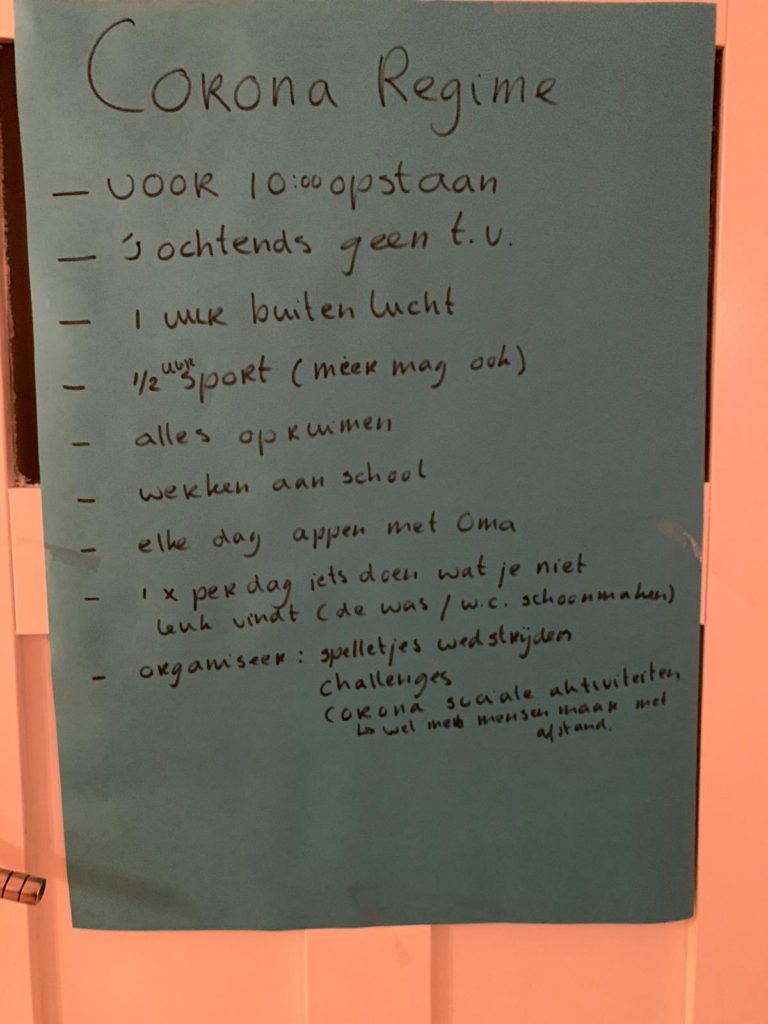 Corona Regime
- voor 10:00 opstaan
- 's ochtends geen t.v.
- 1 uur buitenlucht
- 1/2 uur sport (meer mag ook)
- alles opruimen
- werken aan school
- elke dag appen met Oma
- 1 x per dag iets doen wat je niet
leuk vindt (de was / w.c. schoonmaken)
- organiseer: spelletjes wedstrijden
challenges
corona sociale aktiviteiten
↳ wel met mensen maar met
afstand.